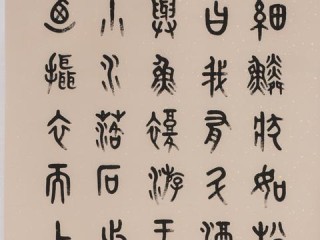 細鱗狀如松
曰我有斗酒
與魚復游于
小水落石出
迺攝衣而上